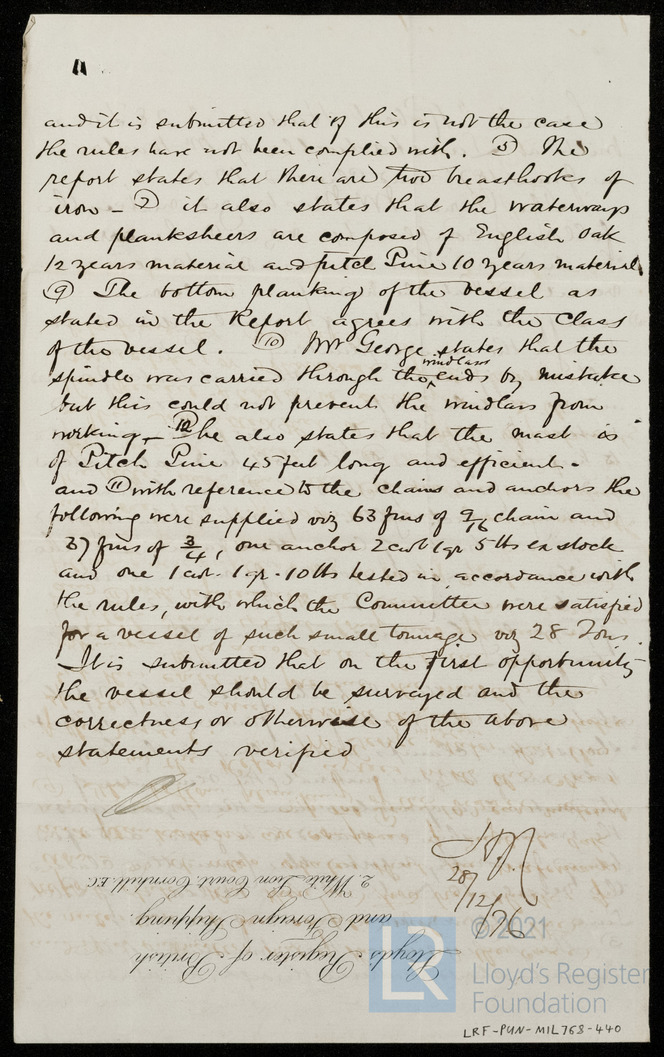 and it is submitted that if this is not the case
the rules have not been complied with. ⑤ The
report states that there are two breasthooks of
iron – ⑦ it also states that the waterways
and planksheers are composed of English Oak
12 years material and pitch Pine 10 years material
⑨ The bottom planking of the vessel as
stated in the Report agrees with the class
of the vessel. ⑩ Mr George states that the
spindle was carried through the windlass ends by mistake
but this could not prevent the windlass from
working – ⑫ he also states that the mast is
of Pitch Pine 45 feet long and efficient.
and ⑪ with reference to the chains and anchors the
following were supplied viz 63 fms of 9/16 chain and
37 fms of 3/4, one anchor 2 cwt 1 qr 5 lbs ex stock
and one 1 cwt. 1 qr. 10 lbs tested in accordance with
the rules, with which the Committee were satisfied
for a vessel of such small tonnage viz 28 Tons.
It is submitted that on the first opportunity
the vessel should be surveyed and the
correctness or otherwise of the above
statements verified
28/12/76
Lloyd's Register of British
and Foreign Shipping.
2, White Lion Court, Cornhill, E.C.
LR
© 2021
Lloyd's Register
Foundation
LRF-PUN-MIL768-440